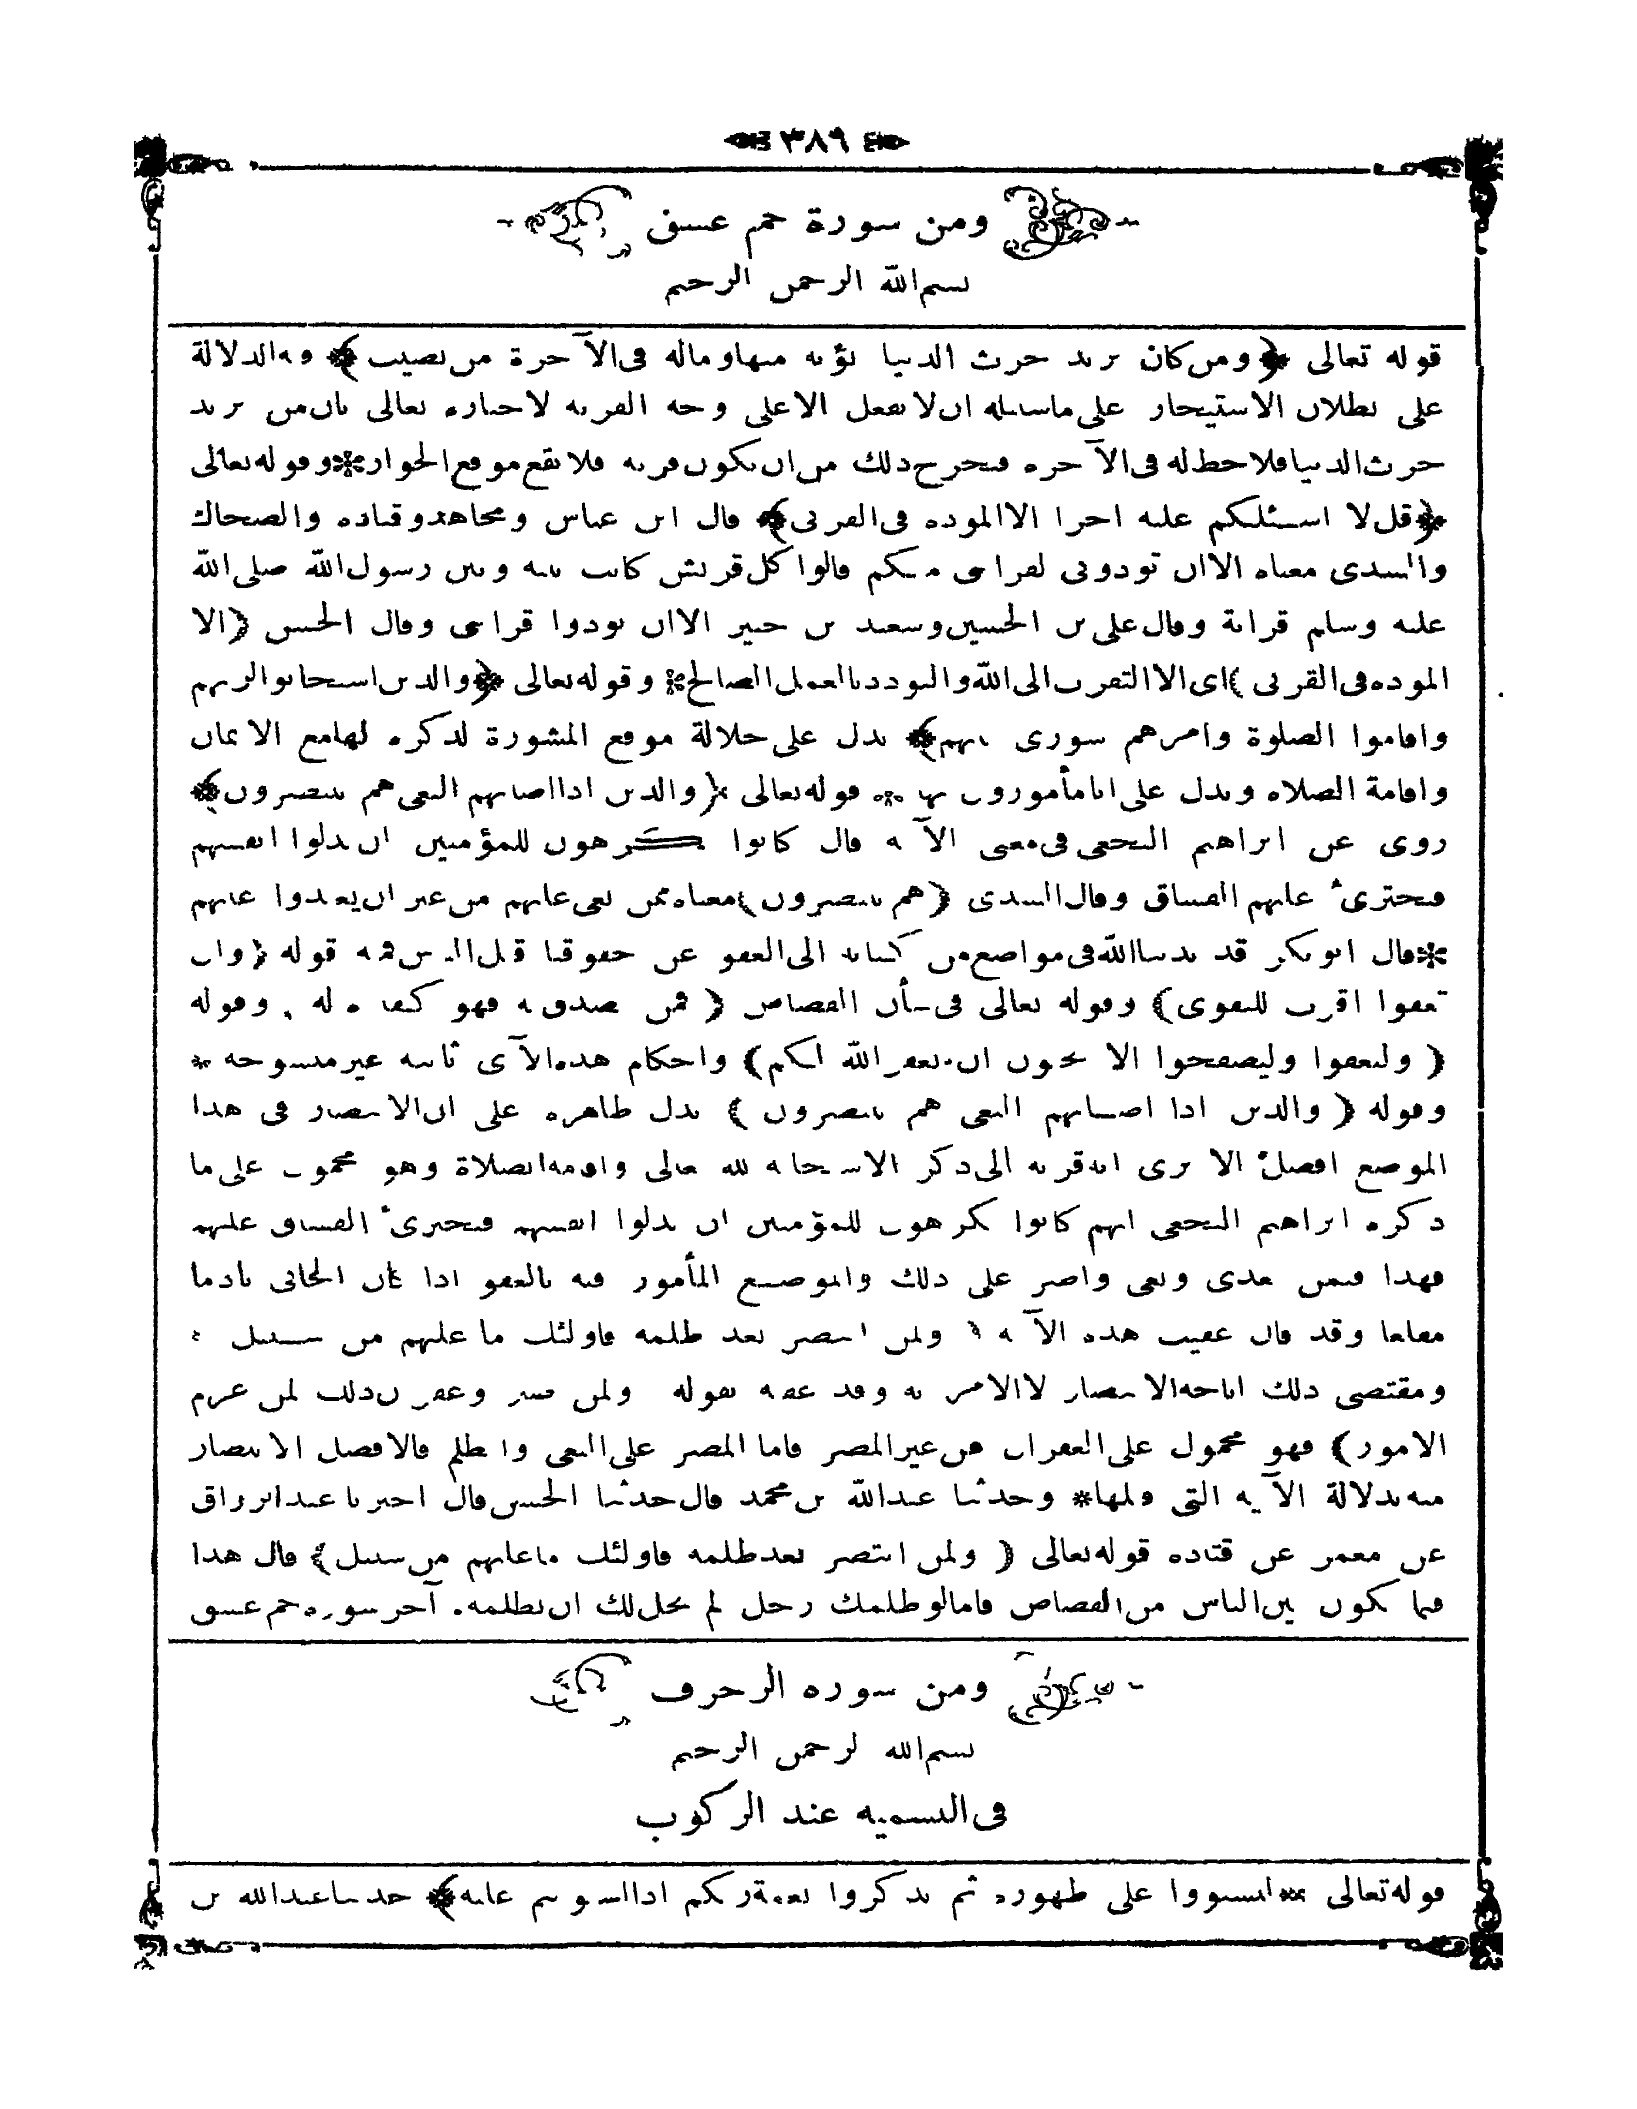 ٣٨٩
ومن سورة حم عسق
بسم الله الرحمن الرحيم
قوله تعالى ﴿ومن كان يريد حرث الدنيا نؤته منها وماله فى الآخرة من نصيب﴾ فيه الدلالة
على بطلان الاستيجار على ما سبيله ان لا يفعل الا على وجه القربة لاخباره تعالى بان من يريد
حرث الدنيا فلا حظ له فى الآخرة فيخرج ذلك من ان يكون قربة فلا يقع موقع الجواز * وقوله تعالى
﴿قل لا اسئلكم عليه اجرا الا المودة فى القربى﴾ قال ابن عباس ومجاهد وقتادة والضحاك
والسدى معناه الا ان تودونى لقرابتى منكم قالوا كل قريش كانت بينه وبين رسول الله صلى الله
عليه وسلم قرابة وقال على بن الحسين وسعيد بن جبير الا ان تودوا قرابتى وقال الحسن (الا
المودة فى القربى) اى الا التقرب الى الله والتودد بالعمل الصالح * وقوله تعالى ﴿والذين استجابوا لربهم
واقاموا الصلوة وامرهم شورى بينهم﴾ يدل على جلالة موقع المشورة لذكره لها مع الايمان
واقامة الصلاة ويدل على انا مأمورون بها * قوله تعالى ﴿والذين اذا اصابهم البغى هم ينتصرون﴾
روى عن ابراهيم النخعى فى معنى الآية قال كانوا يكرهون للمؤمنين ان يذلوا انفسهم
فيجترئ عليهم الفساق وقال السدى (هم ينتصرون) معناه ممن بغى عليهم من غير ان يعتدوا عليهم
* قال ابو بكر قد ندبنا الله فى مواضع من كتابه الى العفو عن حقوقنا قبل الناس فمنه قوله (وان
تعفوا اقرب للتقوى) وقوله تعالى فى شأن القصاص (فمن تصدق به فهو كفارة له) وقوله
(وليعفوا وليصفحوا الا تحبون ان يغفر الله لكم) واحكام هذه الآى ثابتة غير منسوخة *
وقوله (والذين اذا اصابهم البغى هم ينتصرون) يدل ظاهره على ان الانتصار فى هذا
الموضع افضل الا ترى انه قرنه الى ذكر الاستجابة لله تعالى واقامة الصلاة وهو محمول على ما
ذكره ابراهيم النخعى انهم كانوا يكرهون للمؤمنين ان يذلوا انفسهم فيجترئ الفساق عليهم
فهذا فيمن تعدى وبغى واصر على ذلك والموضع المأمور فيه بالعفو اذا كان الجانى نادما
مقلعا وقد قال عقيب هذه الآية (ولمن انتصر بعد ظلمه فاولئك ما عليهم من سبيل)
ومقتضى ذلك اباحة الانتصار لا الامر به وقد عقبه بقوله (ولمن صبر وغفر ان ذلك لمن عزم
الامور) فهو محمول على الغفران عن غير المصر فاما المصر على البغى والظلم فالافضل الانتصار
منه بدلالة الآية التى قبلها * وحدثنا عبد الله بن محمد قال حدثنا الحسن قال اخبرنا عبد الرزاق
عن معمر عن قتادة قوله تعالى (ولمن انتصر بعد ظلمه فاولئك ما عليهم من سبيل) قال هذا
فيما يكون بين الناس من القصاص فاما لو ظلمك رجل لم يحل لك ان تظلمه. آخر سورة حم عسق
ومن سورة الزخرف
بسم الله الرحمن الرحيم
فى التسمية عند الركوب
قوله تعالى ﴿لتستووا على ظهوره ثم تذكروا نعمة ربكم اذا استويتم عليه﴾ حدثنا عبد الله بن